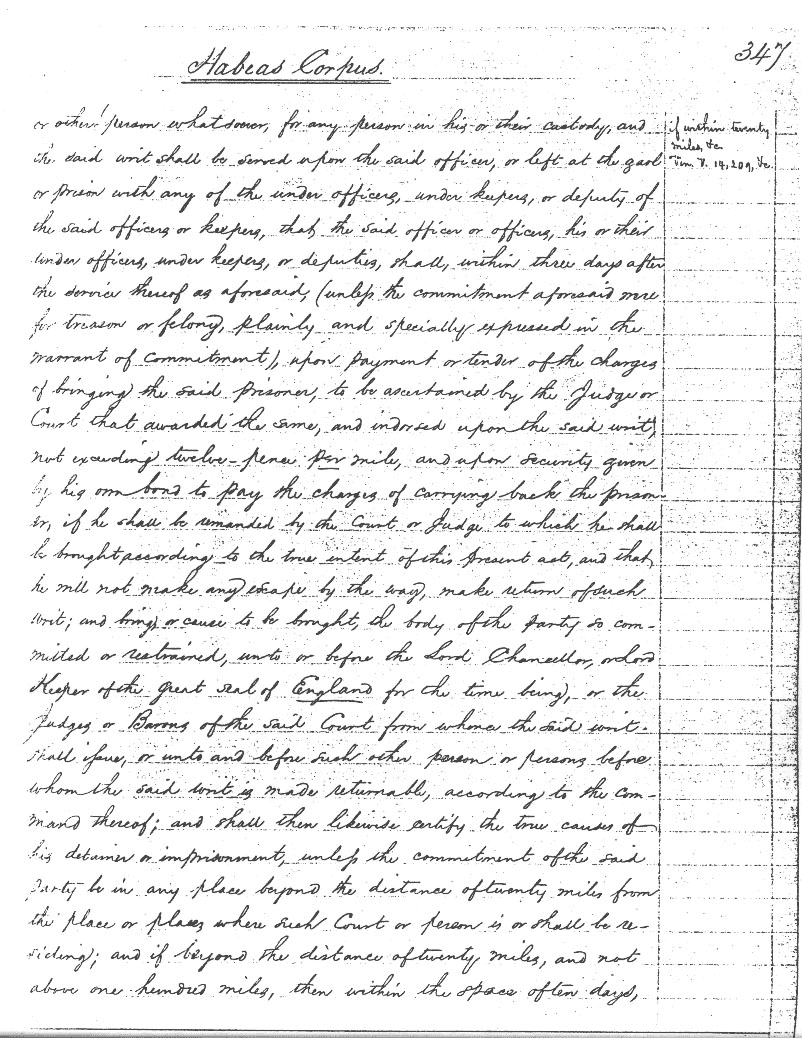 347
Habeas Corpus.
or other person whatsoever, for any person in his or their custody, and
the said writ shall be served upon the said officer, or left at the gaol
or prison with any of the under officers, under keepers, or deputy of
the said officers or keepers, that the said officer or officers, his or their
under officers, under keepers, or deputies, shall, within three days after
the service thereof as aforesaid, (unless the commitment aforesaid were
for treason or felony, plainly and specially expressed in the
warrant of commitment), upon payment or tender of the charges
of bringing the said prisoner, to be ascertained by the Judge or
Court that awarded the same, and indorsed upon the said writ,
not exceeding twelve-pence per mile, and upon security given
by his own bond to pay the charges of carrying back the prison-
er, if he shall be remanded by the Court or Judge to which he shall
be brought according to the true intent of this present act, and that
he will not make any escape by the way, make return of such
writ; and bring, or cause to be brought, the body of the party so com-
mitted or restrained, unto or before the Lord Chancellor, or Lord
Keeper of the great seal of England for the time being, or the
Judges or Barons of the said Court from whence the said writ
shall issue, or unto and before such other person or persons before
whom the said writ is made returnable, according to the com-
mand thereof; and shall then likewise certify the true causes of
his detainer or imprisonment, unless the commitment of the said
party be in any place beyond the distance of twenty miles from
the place or places where such Court or person is or shall be re-
siding; and if beyond the distance of twenty miles, and not
above one hundred miles, then within the space of ten days,
if within twenty
miles, &c.
V. 14, 209, &c.